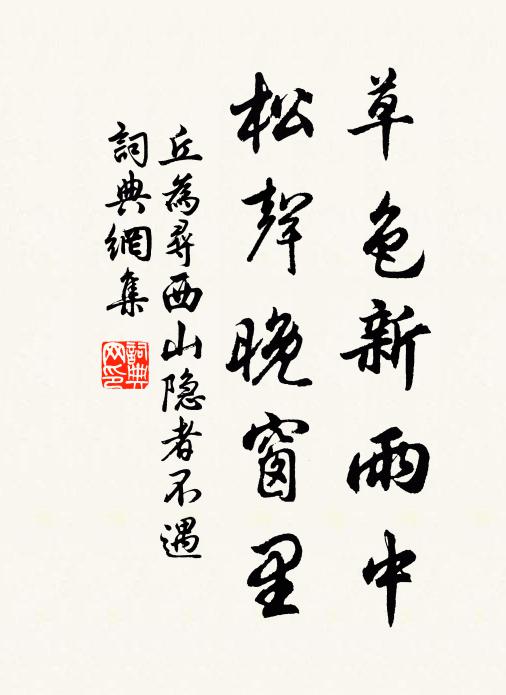 草色新雨中
松聲晚窗里
丘為尋西山隐者不遇
詞典網集
詞典网印